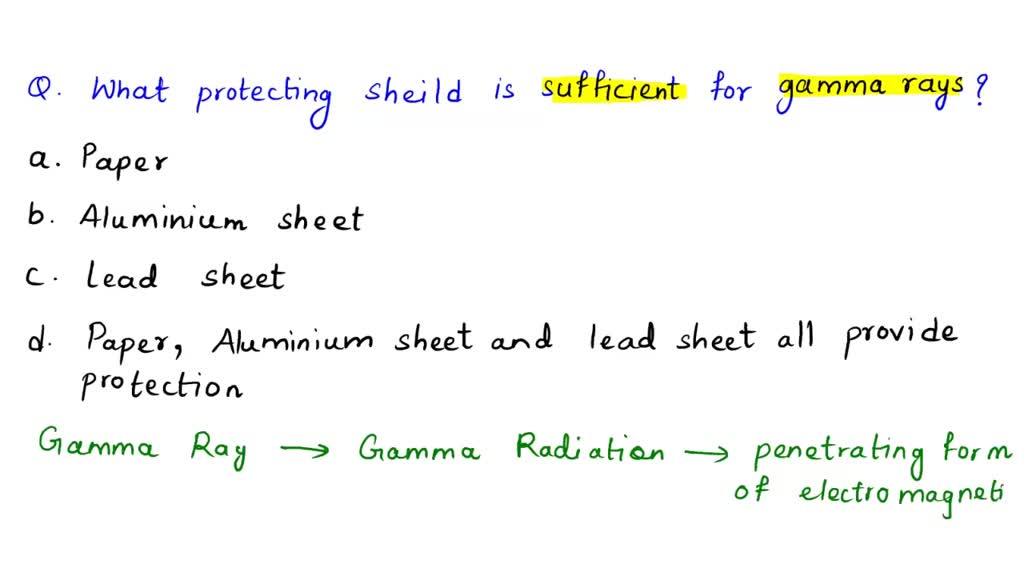 Q. What protecting sheild is sufficient for gamma rays?
a. Paper
b. Aluminium sheet
c. Lead sheet
d. Paper, Aluminium sheet and lead sheet all provide
protection
Gamma Ray → Gamma Radiation → penetrating form
of electromagneti